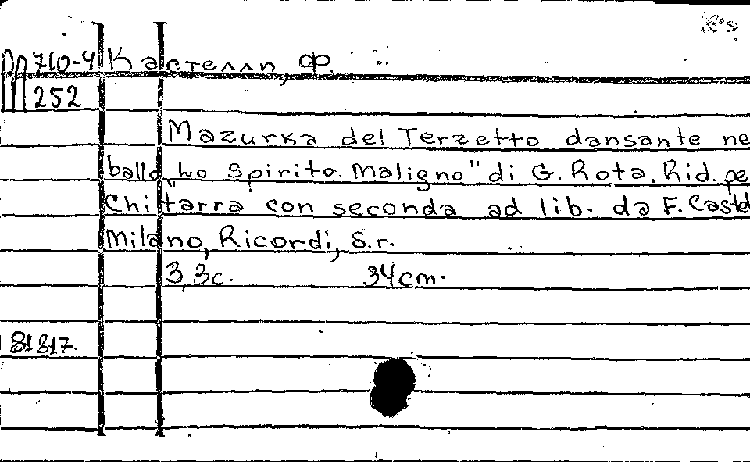 П 710-4 Кастелли, Ф.
252
Mazurka del Terzetto dansante ne
ballo "Lo Spirito Maligno" di G. Rota. Rid. pe
Chitarra con seconda ad lib. da F. Castel
Milano, Ricordi, S.r.
3,3c. 34cm.
81817.